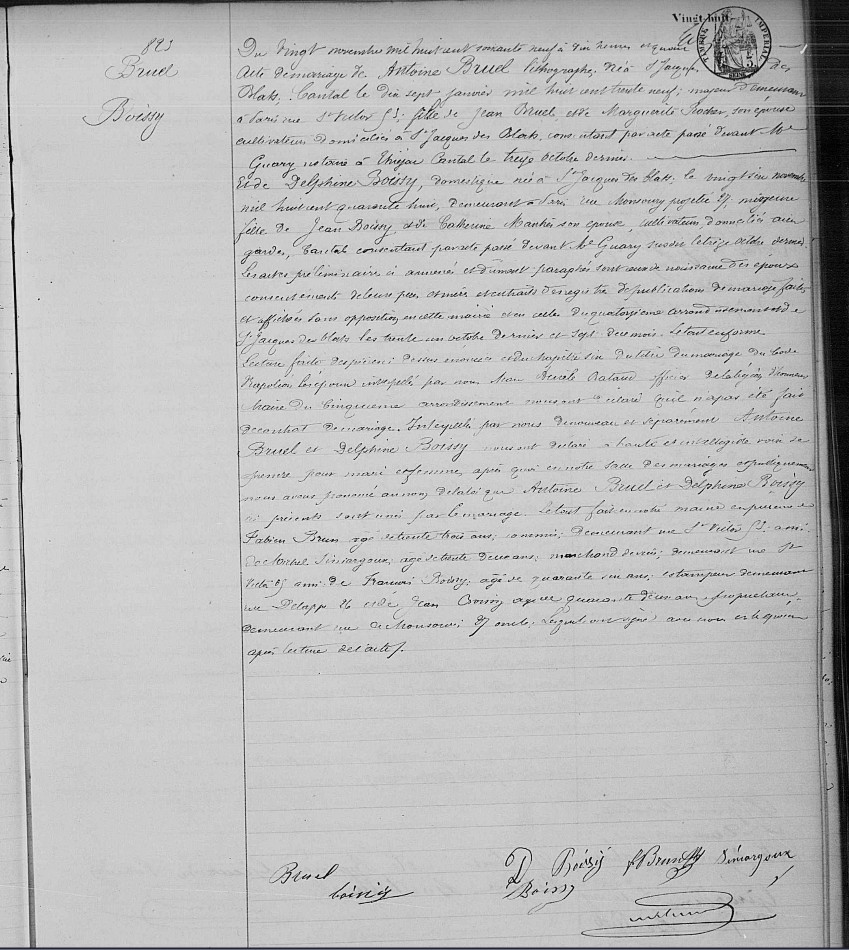 Vingt huit
TIMBRE IMPERIAL
SEINE
823
Bruel
Boissy
Du vingt novembre mil huit cent soixante neuf à dix heures et quart
Acte de mariage de Antoine Bruel lithographe, né à St Jacques des
Blats, Cantal le dix sept janvier mil huit cent trente neuf; majeur demeurant
à Paris rue St Victor 53; fils de Jean Bruel, et de Marguerite son épouse
cultivateurs domiciliés à St Jacques des Blats, consentant par acte passé devant Me
Guary notaire à Cantal le treize octobre dernier.
Et de Delphine Boissy, domestique née à St Jacques des Blats, le vingt six novembre
mil huit cent quarante huit, demeurant à Paris rue Monsoury projetée 27 mineure
fille de Jean Boissy et de Catherine son épouse, cultivateurs, domiciliés aux
gardes, Cantal consentant par acte passé devant Me Guary susdit le treize octobre dernier
Les actes préliminaires ci annexés et dûment paraphés sont ceux de naissance des époux
consentements de leurs pères et mères et extraits des registres de publications de mariage faites
et affichées sans opposition en cette mairie et en celle du quatorzième arrondissement et de
St Jacques des blats les trente un octobre dernier et sept de ce mois. Le tout en forme
Lecture faite des pièces ci dessus énoncées et du chapitre six du titre du mariage du Code
Napoléon les époux interpellés par nous officier de la légion d'honneur
Maire du Cinquième arrondissement nous ont déclaré qu'il n'a pas été fait
de contrat de mariage. Interpellés par nous de nouveau et séparément Antoine
Bruel et Delphine Boissy nous ont déclaré à haute et intelligible voix se
prendre pour mari et femme, après quoi en notre salle des mariages et publiquement
nous avons prononcé au nom de la loi que Antoine Bruel et Delphine Boissy
ci présents sont unis par le mariage. Le tout fait en notre mairie en présence de
Fabien Brun agé de trente trois ans; commis; demeurant rue St Victor 53; ami
de Michel Simargoux; agé de trente deux ans; marchand de vin; demeurant rue St
Victor ami de Francois Boissy; agé de quarante un ans; estampeur demeurant
rue Delappe 26 et de Jean Boissy agé de quarante deux ans propriétaire,
demeurant rue de Monsouris 27 oncle. Lesquels ont signé avec nous et les époux
après lecture de l'acte.
Bruel
boissy
D Boissy
Boissy
f Brun
Simargoux